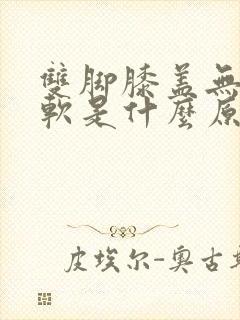 雙脚膝盖無
軟是什麼原
皮埃尔-奥古